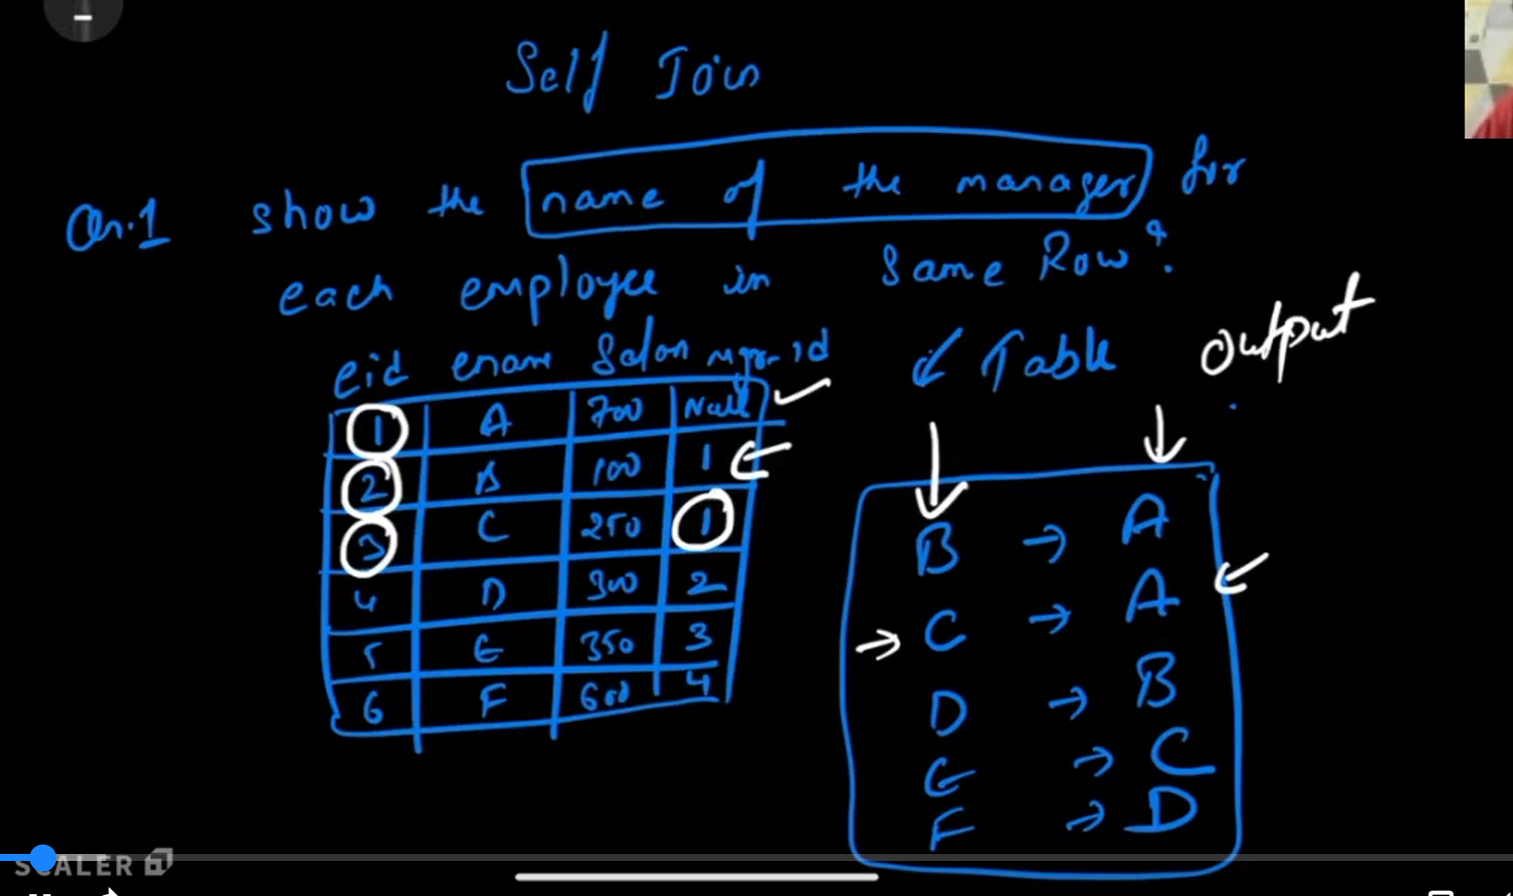 Self Join
Qn.1 show the name of the manager for
each employee in Same Row?
eid ename mgr-id
Table
output
1 A 700 Null
2 B 100 1
3 C 250 1
4 D 300 2
5 E 350 3
6 F 600 4
B → A
C → A
D → B
E → C
F → D
SCALER